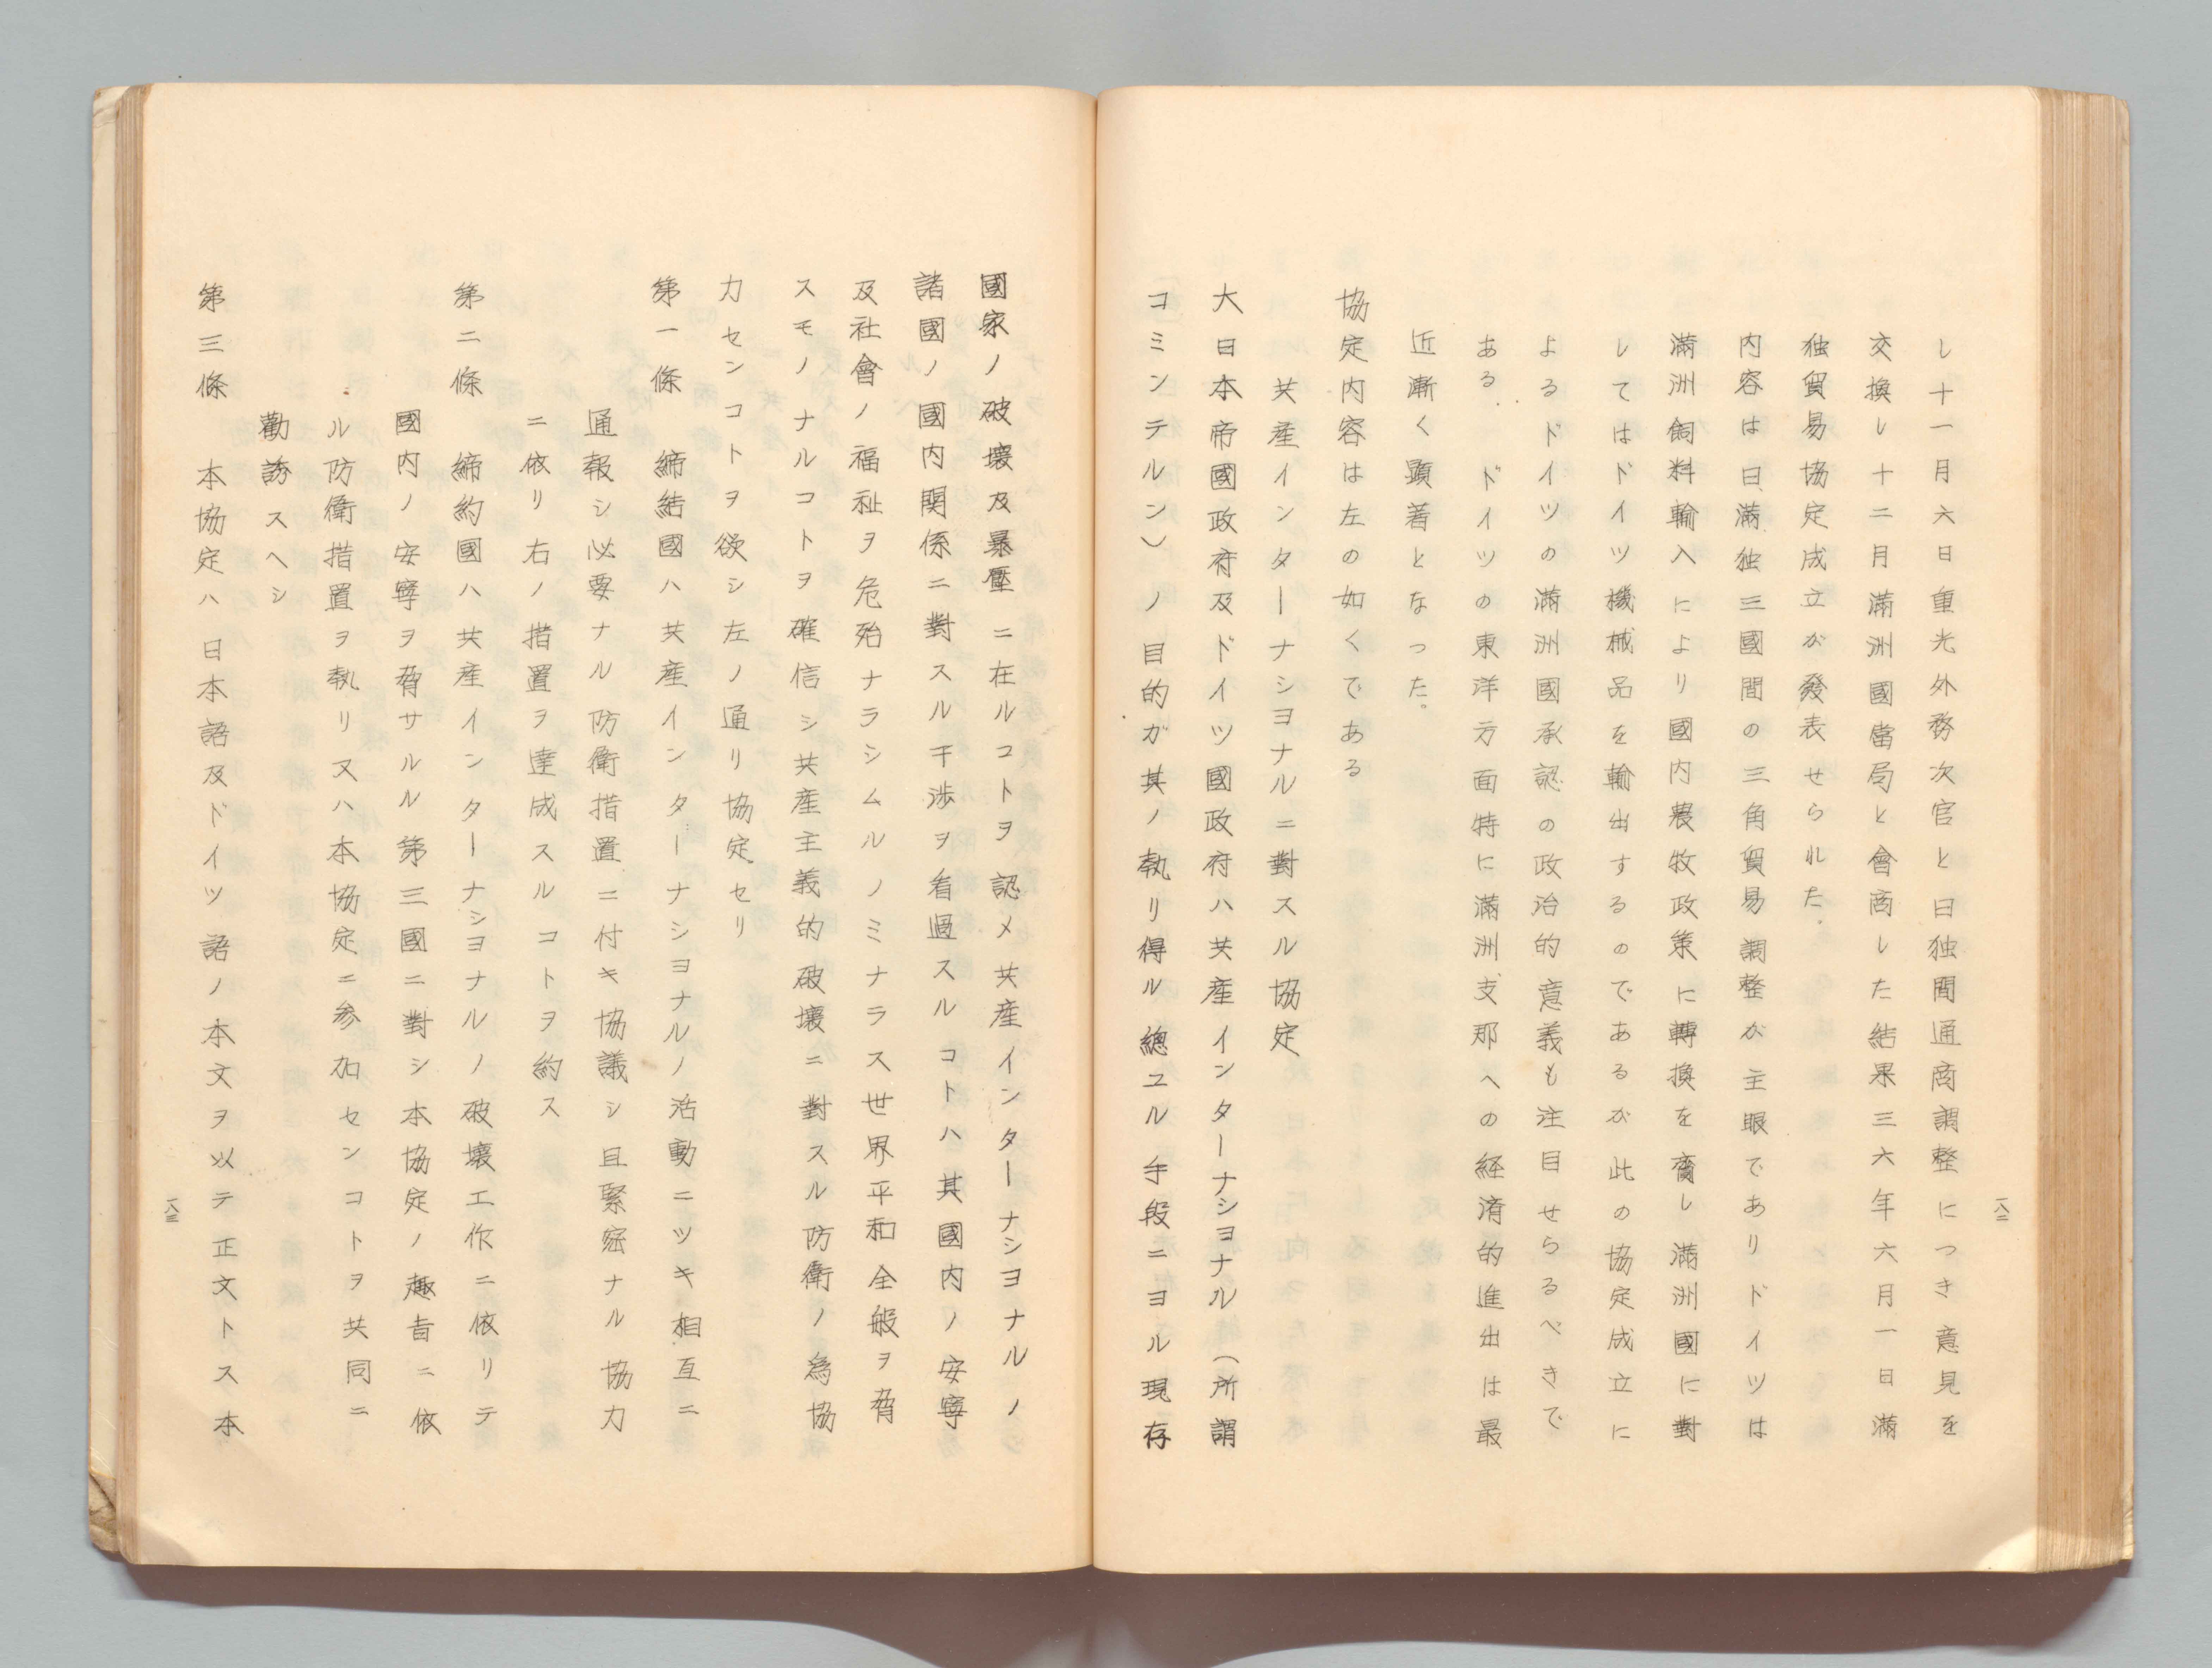 し十一月六日重光外務次官と日独間通商調整につき意見を
交換し十二月滿洲國當局と會商した結果三六年六月一日滿
独貿易協定成立が發表せられた。
内容は日、滿、独三國間の三角貿易調整が主眼でありドイツは
滿洲飼料輸入により國内農牧政策に轉換を齎し滿洲國に對
してはドイツ機械品を輸出するのであるが此の協定成立に
よるドイツの滿洲國承認の政治的意義も注目せらるべきで
ある.ドイツの東洋方面特に滿洲支那への経済的進出は最
近漸く顕著となった。
協定内容は左の如くである
共産インターナシヨナルニ對スル協定
大日本帝國政府及ドイツ國政府ハ共産インターナシヨナル(所謂
コミンテルン)ノ目的ガ其ノ執リ得ル總ユル手段ニヨル現存
一八二
國家ノ破壊及暴壓ニ在ルコトヲ認メ共産インターナシヨナルノ
諸國ノ國内関係ニ對スル干渉ヲ看過スルコトハ其國内ノ安寧
及社會ノ福祉ヲ危殆ナラシムルノミナラス世界平和全般ヲ脅
スモノナルコトヲ確信シ共産主義的破壊ニ對スル防衛ノ為協
力センコトヲ欲シ左ノ通リ協定セリ
第一條 締結國ハ共産インターナシヨナルノ活動ニツキ相互ニ
通報シ必要ナル防衛措置ニ付キ協議シ且緊密ナル協力
ニ依リ右ノ措置ヲ達成スルコトヲ約ス
第二條 締約國ハ共産インターナシヨナルノ破壊工作ニ依リテ
國内ノ安寧ヲ脅サルル第三國ニ對シ本協定ノ趣旨ニ依
ル防衛措置ヲ執リ又ハ本協定ニ参加センコトヲ共同ニ
勸誘スヘシ
第三條 本協定ハ日本語及ドイツ語ノ本文ヲ以テ正文トス本
一八三